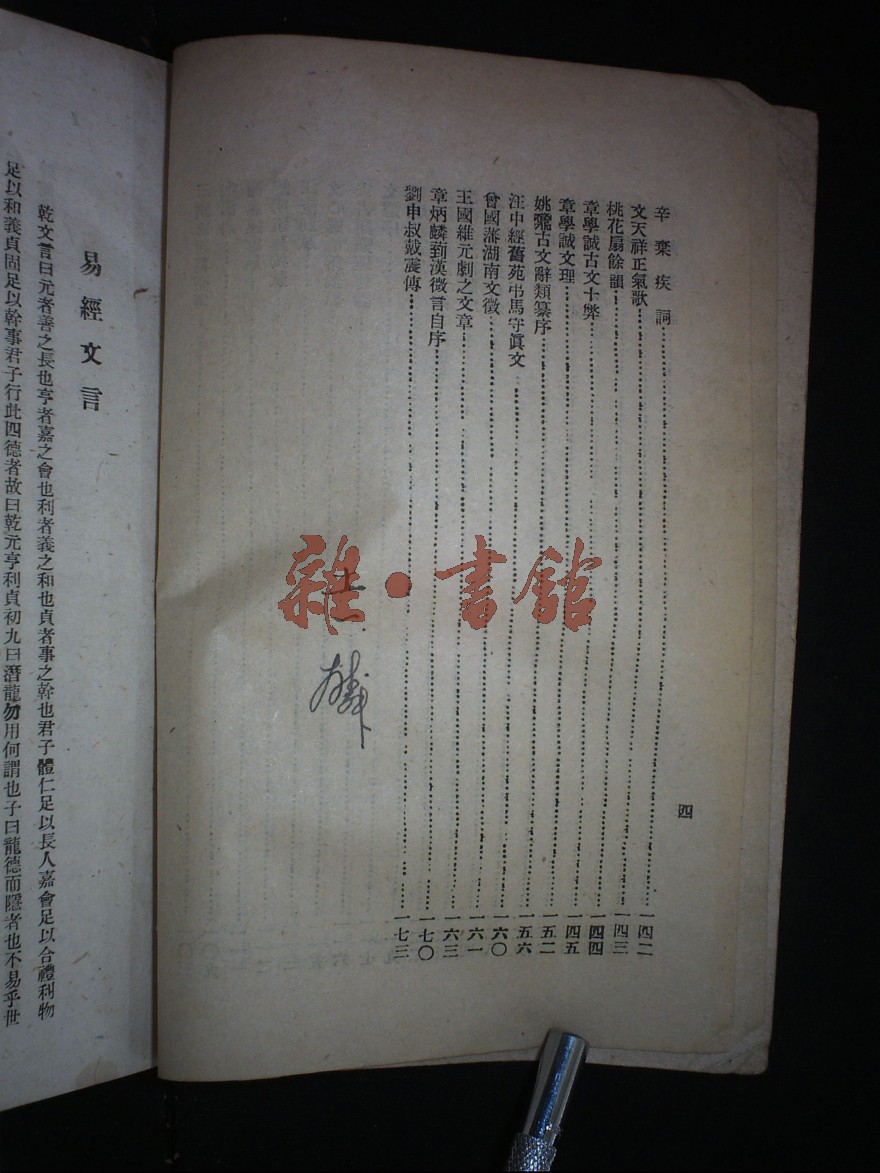 辛棄疾詞……一四二
文天祥正氣歌……一四三
桃花扇餘韻……一四四
章學誠古文十弊……一四五
章學誠文理……一五二
姚鼐古文辭類纂序……一五六
汪中經舊苑弔馬守眞文……一六〇
曾國藩湖南文徵……一六一
王國維元劇之文章……一六三
章炳麟菿漢微言自序……一七〇
劉申叔戴震傳……一七三
四
雜·書館
易經文言
乾文言曰元者善之長也亨者嘉之會也利者義之和也貞者事之幹也君子體仁足以長人嘉會足以合禮利物
足以和義貞固足以幹事君子行此四德者故曰乾元亨利貞初九曰潛龍勿用何謂也子曰龍德而隱者也不易乎世